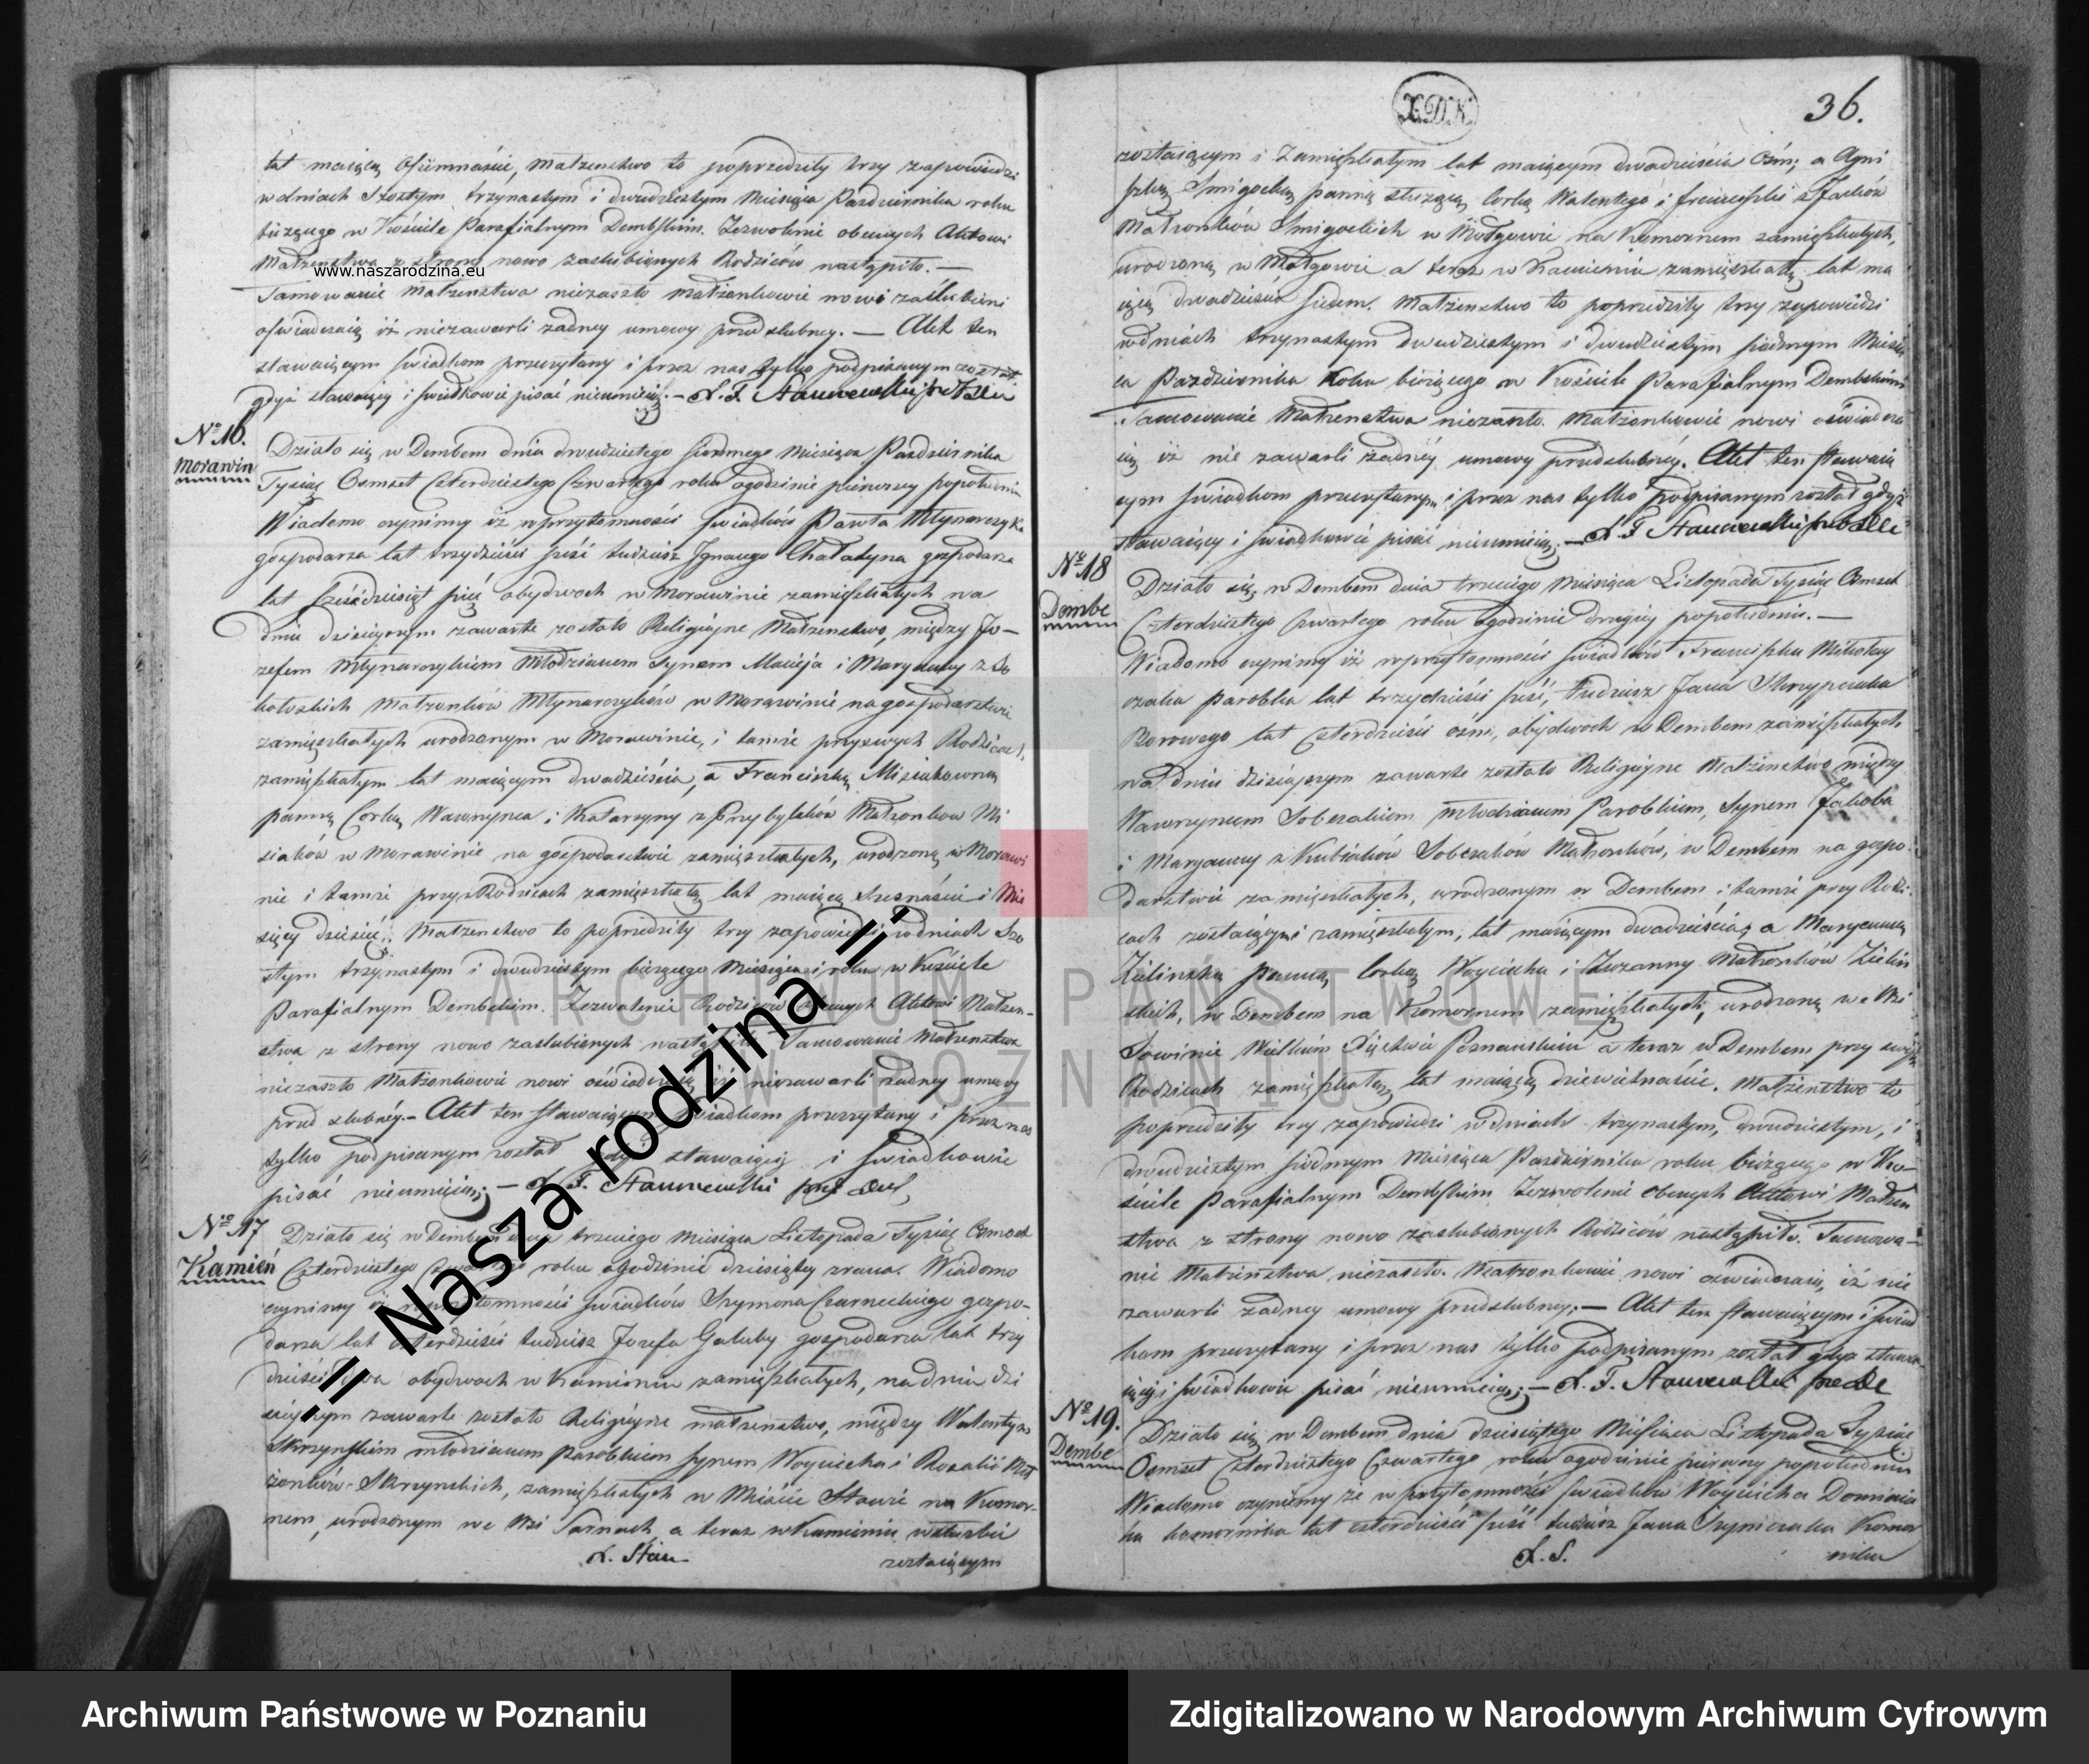 lat maiącą Osiemnaście, Małżenstwo to poprzedziły trzy zapowiedzi
w dniach Szostym trzynastym i dwudziestym Miesiąca Pazdziernika roku
bieżącego w Kościele Parafialnym Dembskim. Zezwolenie obecnych Aktowi
Małżenstwa z strony nowo zaslubionych Rodziców nastąpiło. —
www.naszarodzina.eu
Tamowanie Małżenstwa niezaszło Małżonkowie nowi zaślubieni
oświadczaią iż niezawarli żadney umowy przedślubney. — Akt ten
stawaiącym świadkom przeczytany i przez nas tylko podpisanym został
gdyż stawaiący i świadkowie pisać nieumieią. — X. F.
No 16.
Morawin
Działo się w Dembem dnia dwudziestego siodmego Miesiąca Pazdziernika
Tysiąc Osmset Czterdziestego Czwartego roku o godzinie pierwszey popołudniu
Wiadomo czynimy iż w przytomności Swiadków Pawła Młynarczyka
gospodarza lat trzydzieści pięć tudzież Ignacego Chałatyna gospodarza
lat sześćdziesiąt pięć obydwoch w Morawinie zamięszkałych na
dniu dzisieyszym zawarte zostało Religiyne Małżenstwo, między Jo—
zefem Młynarczykiem Młodzianem Synem Macieja i Maryanny z So
kołoskich Małżonków Młynarczyków w Morawinie na gospodarstwie
zamięszkałych urodzonym w Morawinie, i tamże przy swych Rodzicach
zamięszkałym lat maiącym dwadzieścia, a Franciszką Misiakowną
panną Corką Wawrzyńca i Katarzyny z Przybylaków Małżonkow Mi
siaków w Morawinie na gospodarstwie zamięszkałych, urodzoną w Morawi
nie i tamże przy Rodzicach zamięszkałą lat maiącą Szesnaście i Mie
sięcy dziesięć. Małżenstwo to poprzedziły trzy zapowiedzi w dniach Szo
stym trzynastym i dwudziestym bieżącego Miesiąca i roku w Kościele
Parafialnym Dembskim. Zezwolenie Rodziców obecnych Aktowi Małżen-
stwa z strony nowo zaslubionych nastąpiło. Tamowanie Małżenstwa
niezaszło Małżonkowie nowi oświadczaią iż niezawarli żadney umowy
przed slubney. — Akt ten stawaiącym świadkom przeczytany i przez nas
tylko podpisanym został gdyż stawaiący i świadkowie
pisać nieumieią; — X. F.
No 17
Kamień
Działo się w Dembem dnia trzeciego Miesiąca Listopada Tysiąc Osmset
Czterdziestego Czwartego roku o godzinie dziesiątey zrana. Wiadomo
czynimy iż w przytomności świadków Szymona Czarneckiego gospo-
darza lat czterdzieści tudzież Jozefa Gałuby gospodarza lat trzy
dzieści dwa obydwoch w Kamieniu zamięszkałych, na dniu dzi
sieyszym zawarte zostało Religiyne małżenstwo, między Walentym
Skrzynskim młodzianem Parobkiem synem Woyciecha i Rozalii Mał
żonków Skrzynskich, zamięszkałych w Mieście Stawie na Komor-
nem, urodzonym we Wsi Sarnach a teraz w Kamieniu w służbie
zostaiącym
.:= Nasza rodzina =:.
X.D.K.
36.
zostaiącym i zamięszkałym lat maiącym dwadzieścia osm; a Agni
szką Smigocką panną służącą Corką Walentego i Franciszki z
Małżonków Smigockich w na Komornem zamięszkałych,
urodzoną w a teraz w Kamieniu zamięszkałą lat ma
iącą dwadzieścia siedem. Małżenstwo to poprzedziły trzy zapowiedzi
w dniach trzynastym dwudziestym i dwudziestym siodmym Miesią
ca Pazdziernika Roku bieżącego w Kościele Parafialnym Dembskim
Tamowanie Małżenstwa niezaszło. Małżonkowie nowi oświadcza
ią iż nie zawarli żadney umowy przedslubney. Akt ten stawaią
cym świadkom przeczytany i przez nas tylko podpisanym został gdyż
stawaiący i świadkowie pisać nieumieią; — X. F.
No 18
Dembe
Działo się w Dembem dnia trzeciego Miesiąca Listopada Tysiąc Osmset
Czterdziestego Czwartego roku o godzinie drugiey popołudniu. —
Wiadomo czynimy iż w przytomności świadków Franciszka Mikołay
czaka parobka lat trzydzieści pięć, tudzież Jana Skrzypczaka
Borowego lat czterdzieści osm, obydwoch w Dembem zamięszkałych
na dniu dzisieyszym zawarte zostało Religiyne Małżenstwo między
Wawrzyncem Sobczakiem młodzianem Parobkiem, Synem Jakoba
i Maryanny z Kubiaków Sobczaków Małżonków, w Dembem na gospo-
darstwie zamięszkałych, urodzonym w Dembem i tamże przy Rodzi-
cach zostaiącym i zamięszkałym, lat maiącym dwadzieścia, a Maryanną
Zielinską panną Corką Woyciecha i Zuzanny Małżonków Zielin
skich, w Dembem na Komornem zamięszkałych, urodzoną we Wsi
Sowinie Wielkim Xięstwie Poznańskim a teraz w Dembem przy swych
Rodzicach zamięszkałą, lat maiącą dziewietnaście. Małżenstwo to
poprzedziły trzy zapowiedzi w dniach trzynastym, dwudziestym, i
dwudziestym siodmym Miesiąca Pazdziernika roku bieżącego w Ko—
ściele Parafialnym Dembskim Zezwolenie Obecnych Aktowi Małżen
stwa z strony nowo zaslubionych Rodziców nastąpiło. Tamowa—
nie Małżenstwa niezaszło. Małżonkowie nowi oświadczaią, iż nie
zawarli żadney umowy przedslubney; — Akt ten stawaiącym i świad
kom przeczytany i przez nas tylko podpisanym został gdyż stawa-
iący i świadkowie pisać nieumieią; — X. F.
No 19.
Dembe
Działo się w Dembem dnia dziesiątego Miesiąca Listopada Tysiąc
Osmset Czterdziestego Czwartego roku o godzinie pierwszey popołudniu
Wiadomo czyniemy że w przytomności świadków Woyciecha Dominia
ka komornika lat czterdzieści pięć tudzież Jana Szymczaka Komor
nika
ARCHIWUM PAŃSTWOWE
W POZNANIU
Archiwum Państwowe w Poznaniu
Zdigitalizowano w Narodowym Archiwum Cyfrowym